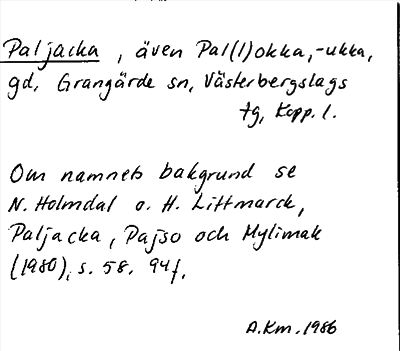 Paljacka, även Pal(l)okka, -ukka,
gd, Grangärde sn, Västerbergslags
tg, Kopp. l.
Om namnets bakgrund se
N. Holmdal o. H. Littmarck,
Paljacka, Pajso och Mylimak
(1980), s. 58. 94f.
A.Km. 1986